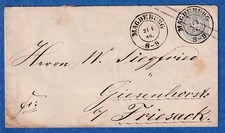 MAGDEBURG
21 1
8-9
MAGDEBURG
8-9
Herrn W. Siegfried
Giesenhorst
b/ Friesack.
fr.